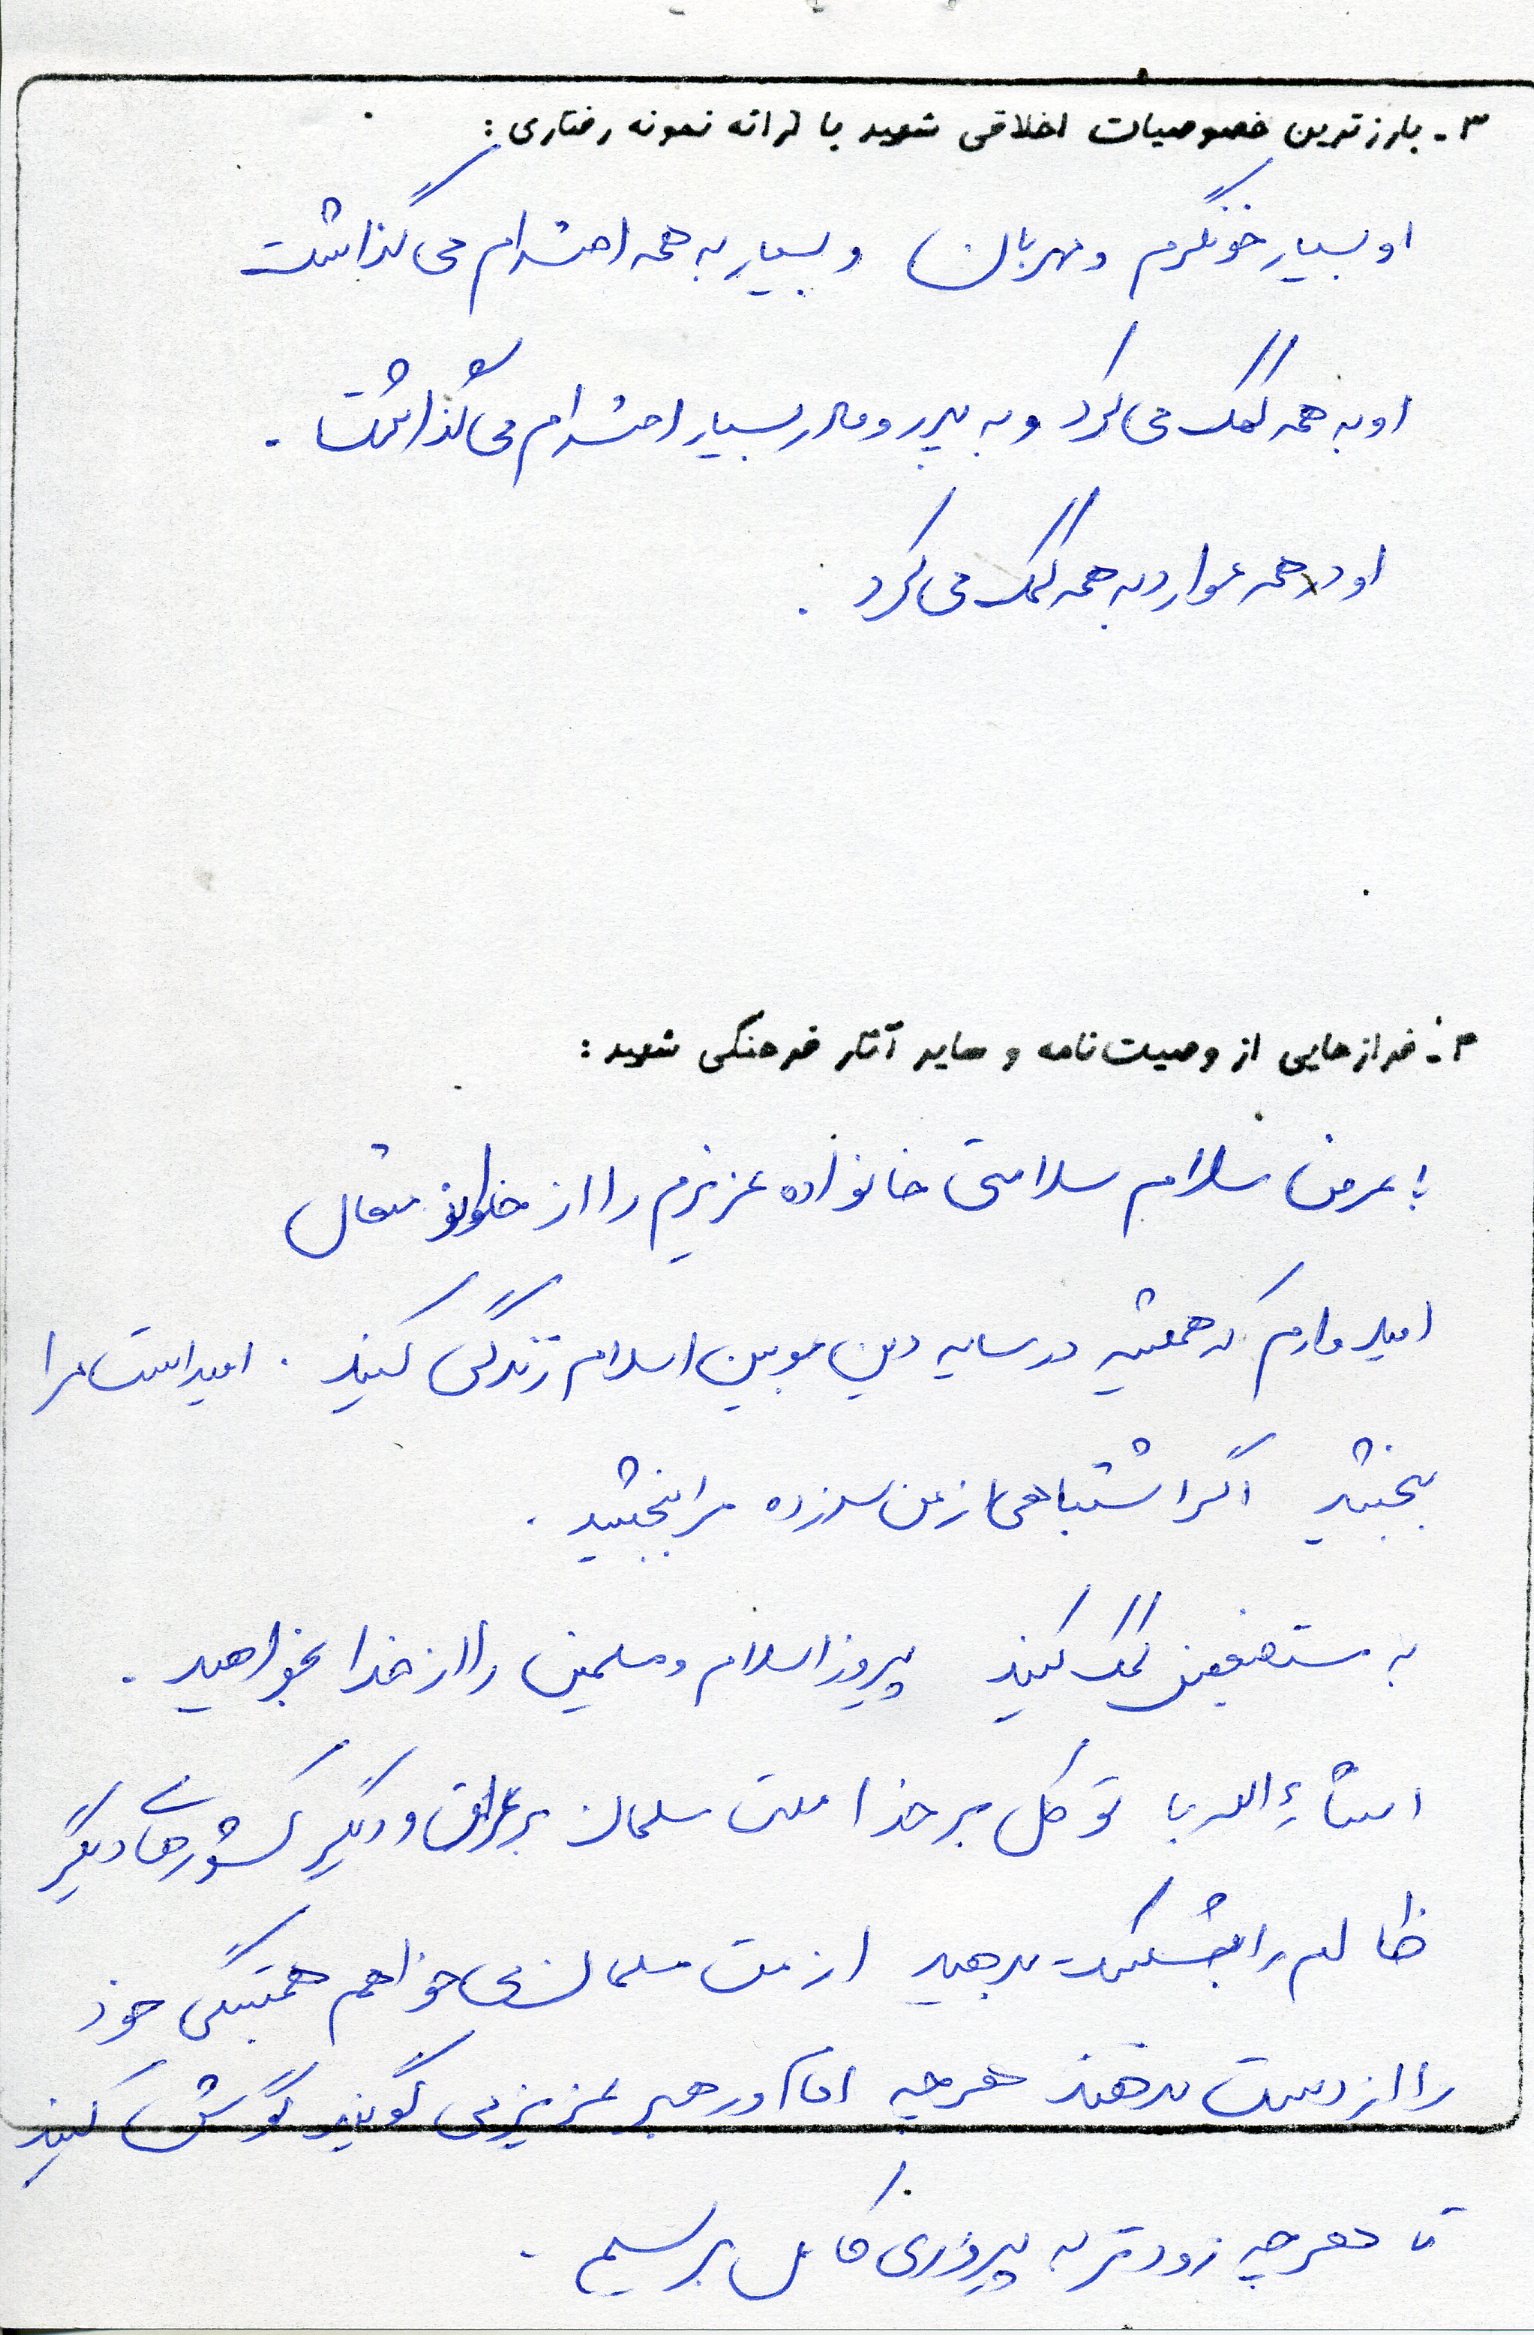 ۳- بارزترین خصوصیات اخلاقی شهید با ارائه نمونه رفتاری:
او بسیار خونگرم و مهربان و بسیار به همه احترام می گذاشت
او به همه کمک می کرد و به پدر و مادر بسیار احترام می گذاشت.
او در همه موارد به همه کمک می کرد.
۴- فرازهایی از وصیت‌نامه و سایر آثار فرهنگی شهید:
با عرض سلام سلامتی خانواده عزیزم را از خداوند متعال
امیدوارم که همیشه در سایه دین مبین اسلام زندگی کنید. امید است مرا
ببخشید اگر اشتباهی از من سر زده مرا ببخشید.
به مستضعفین کمک کنید پیروز اسلام و مسلمین را از خدا بخواهید.
انشاءالله با توکل بر خدا ملت مسلمان بر عراق و دیگر کشورهای دیگر
ظالم را شکست بدهید از ملت مسلمان می خواهم همبستگی خود
را از دست ندهند هرچه امام و رهبر عزیز می گویند گوش کنید
تا هرچه زودتر به پیروزی کامل برسیم.